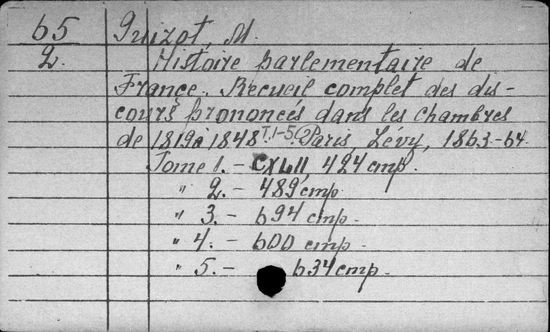 65 Guizot, M.
2. Histoire parlementaire de
France. Recueil complet des dis-
cours prononcés dans les chambres
de 1819 à 1848 T. 1-5.(2) Paris, Lévy, 1863-64.
Tome 1. - CXLII, 424 стр.
" 2. - 489 стр.
" 3. - 694 стр.
" 4. - 600 стр.
" 5. - 634 стр.